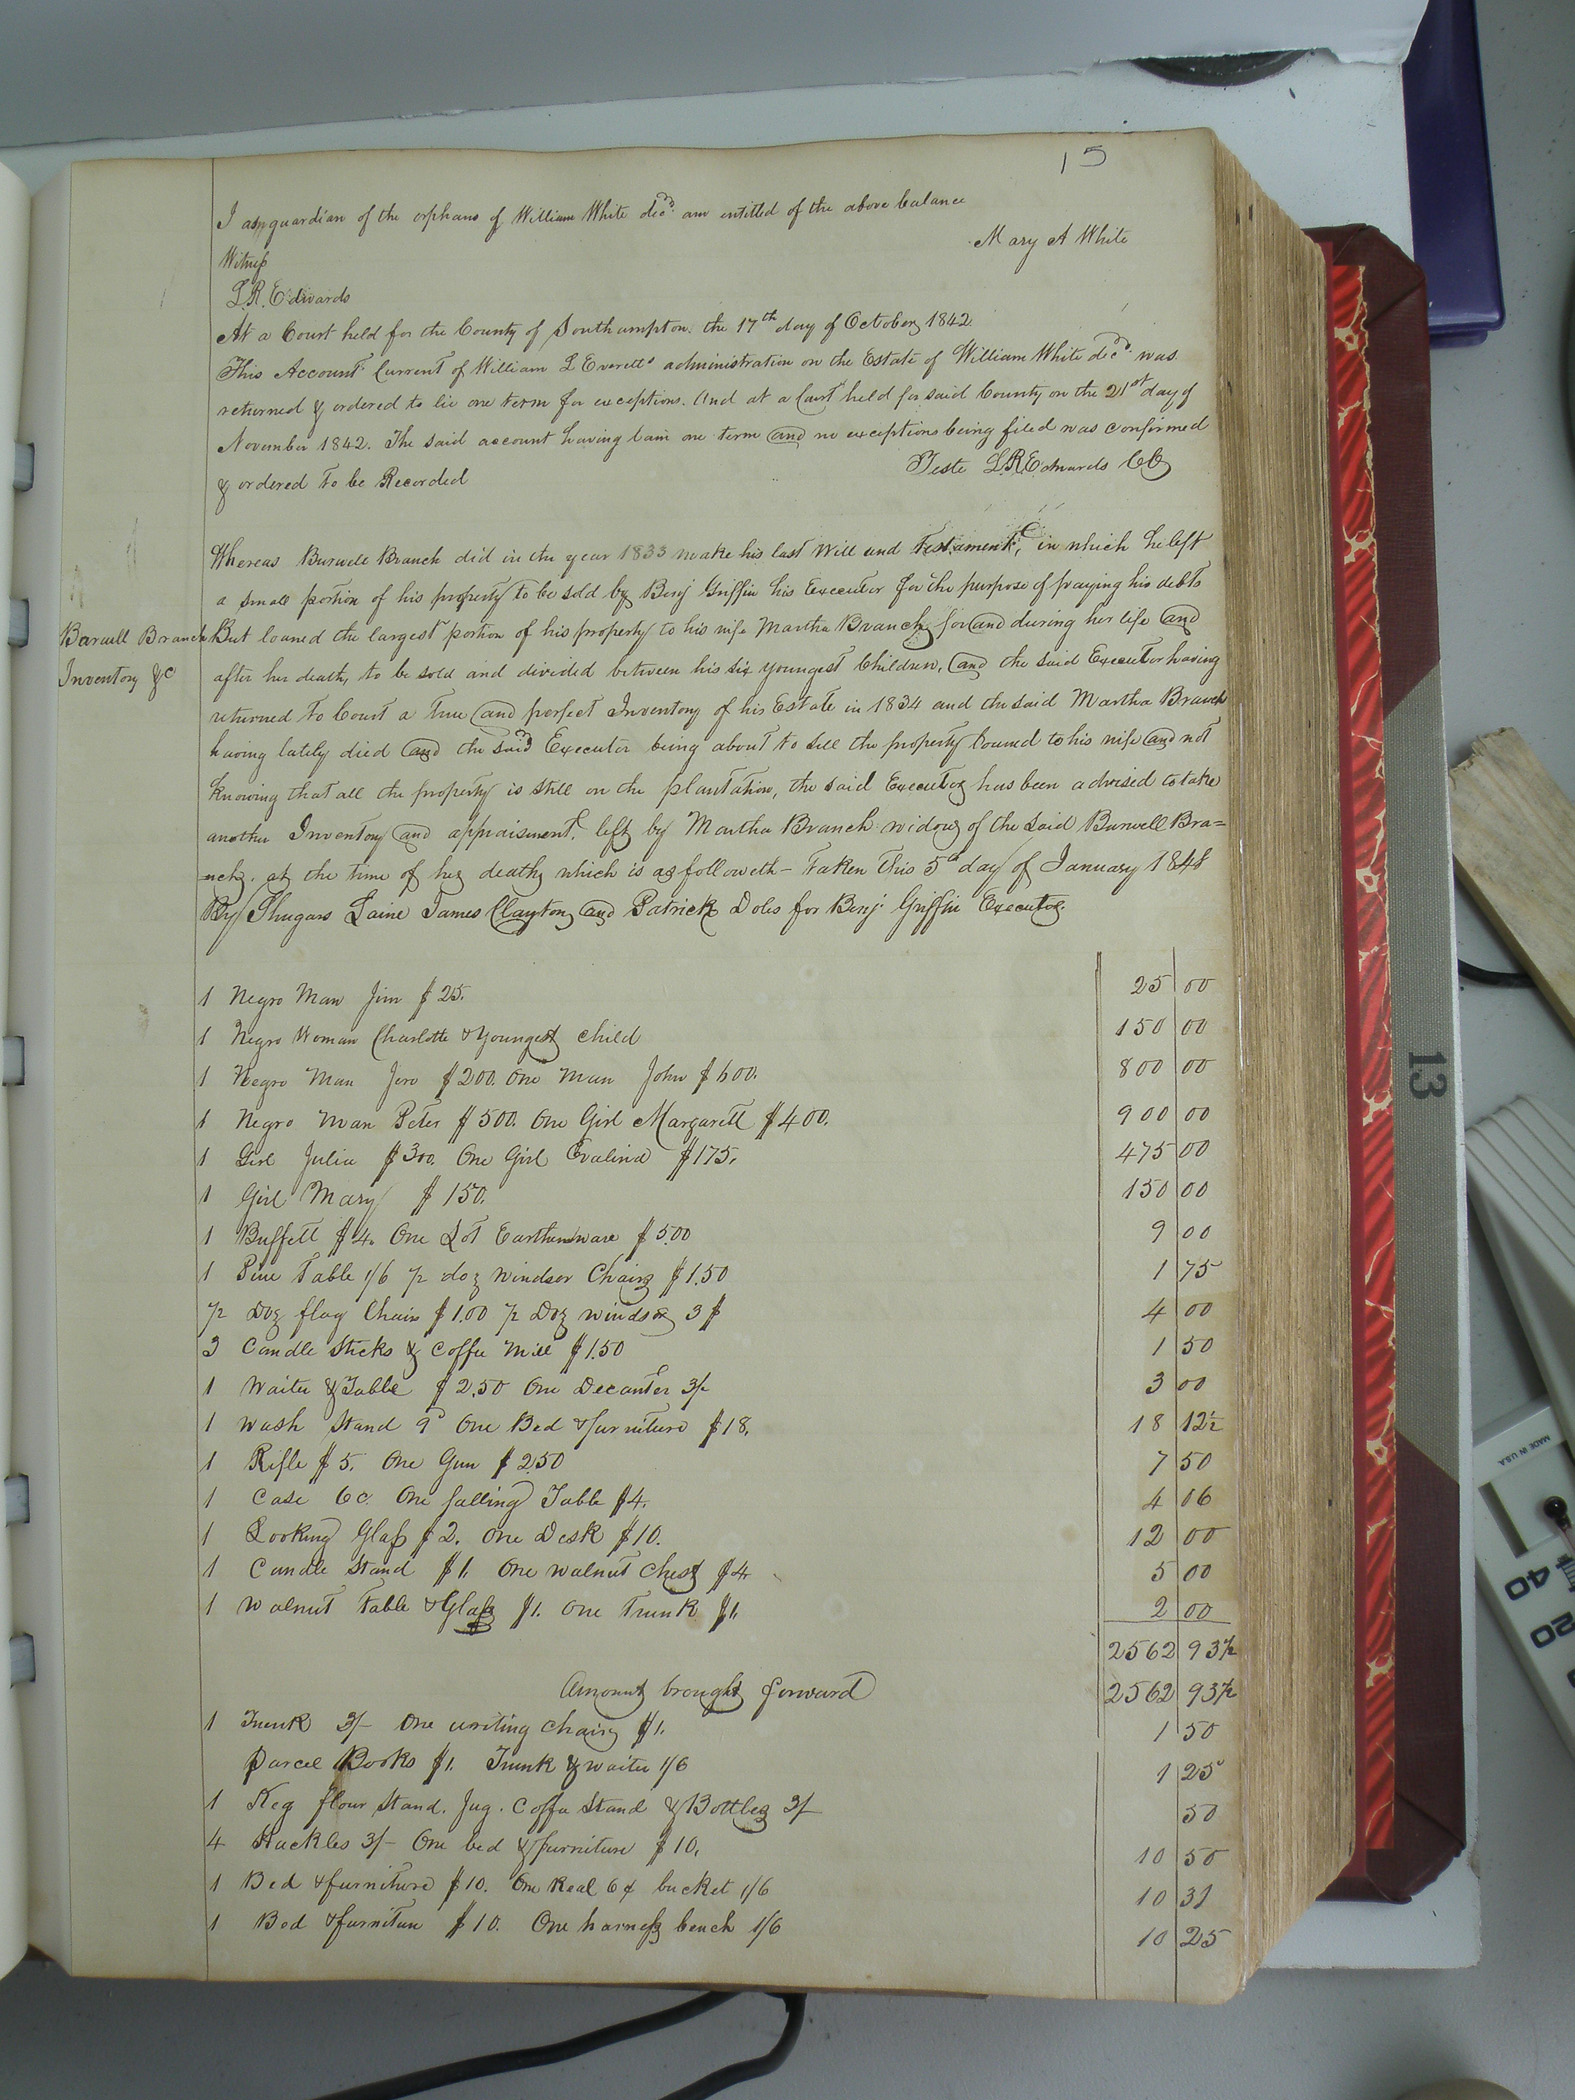 15
I as guardian of the orphans of William White decd. am entitled of the above balance
Mary A White
Witness
L.R. Edwards
At a Court held for the County of Southampton the 17th day of October 1842
This Account Current of William L Everetts administration on the Estate of William White decd. was
returned & ordered to lie one term for exceptions. And at a Court held for said County on the 21st day of
November 1842. The said account having lain one term and no exceptions being filed was confirmed
& ordered to be Recorded
Teste L.R. Edwards CC
Whereas Burwell Branch did in the year 1833 make his last Will and Testament, in which he left
a small portion of his property to be sold by Benj Griffin his Executor for the purpose of paying his debts
Burwell Branch
Inventory &c
But loaned the largest portion of his property to his wife Martha Branch for and during her life and
after her death, to be sold and divided between his six youngest Children, and the said Executor having
returned to Court a true and perfect Inventory of his Estate in 1834 and the said Martha Branch
having lately died and the said Executor being about to sell the property loaned to his wife and not
knowing that all the property is still on the plantation, the said Executor has been advised to take
another Inventory and appraisment, left by Martha Branch widow of the said Burwell Bra=
=nch. at the time of her death which is as followeth - Taken this 5th day of January 1848
By Shugars Laine James Clayton and Patrick Doles for Benj. Griffin Executor.
1 Negro Man Jim $25. 25 00
1 Negro Woman Charlotte & Youngest Child 150 00
1 Negro Man Jero $200. One Man John $600. 800 00
1 Negro Man Peter $500. One Girl Margarett $400. 900 00
1 Girl Julia $300. One Girl Evalina $175. 475 00
1 Girl Mary $150. 150 00
1 Buffett $4. One Lot Earthenware $5.00 9 00
1 Pine Table 1/6 1/2 doz Windsor Chairs $1.50 1 75
1/2 Doz flag Chairs $1.00 1/2 Doz windsor 3$ 4 00
3 Candle Sticks & Coffee Mill $1.50 1 50
1 Waiter & Table $2.50 One Decanter 3/- 3 00
1 Wash Stand 9d One Bed & furniture $18. 18 12½
1 Rifle $5. One Gun $2.50 7 50
1 Case 6c. One falling Table $4. 4 06
1 Looking Glass $2. One Desk $10. 12 00
1 Candle Stand $1. One walnut Chest $4 5 00
1 Walnut Table & Glass $1. One Trunk $1. 2 00
2562 93½
Amount brought forward 2562 93½
1 Trunk 3/- One writing Chair $1. 1 50
Parcel Books $1. Trunk & waiter 1/6 1 25
1 Keg flour Stand. Jug. Coffee Stand & Bottles 3/- 50
4 Hackles 3/- One bed & furniture $10. 10 50
1 Bed & furniture $10. One Real 6¢ bucket 1/6 10 31
1 Bed & furniture $10. One harness bench 1/6 10 25
13
MADE IN U.S.A
40
20